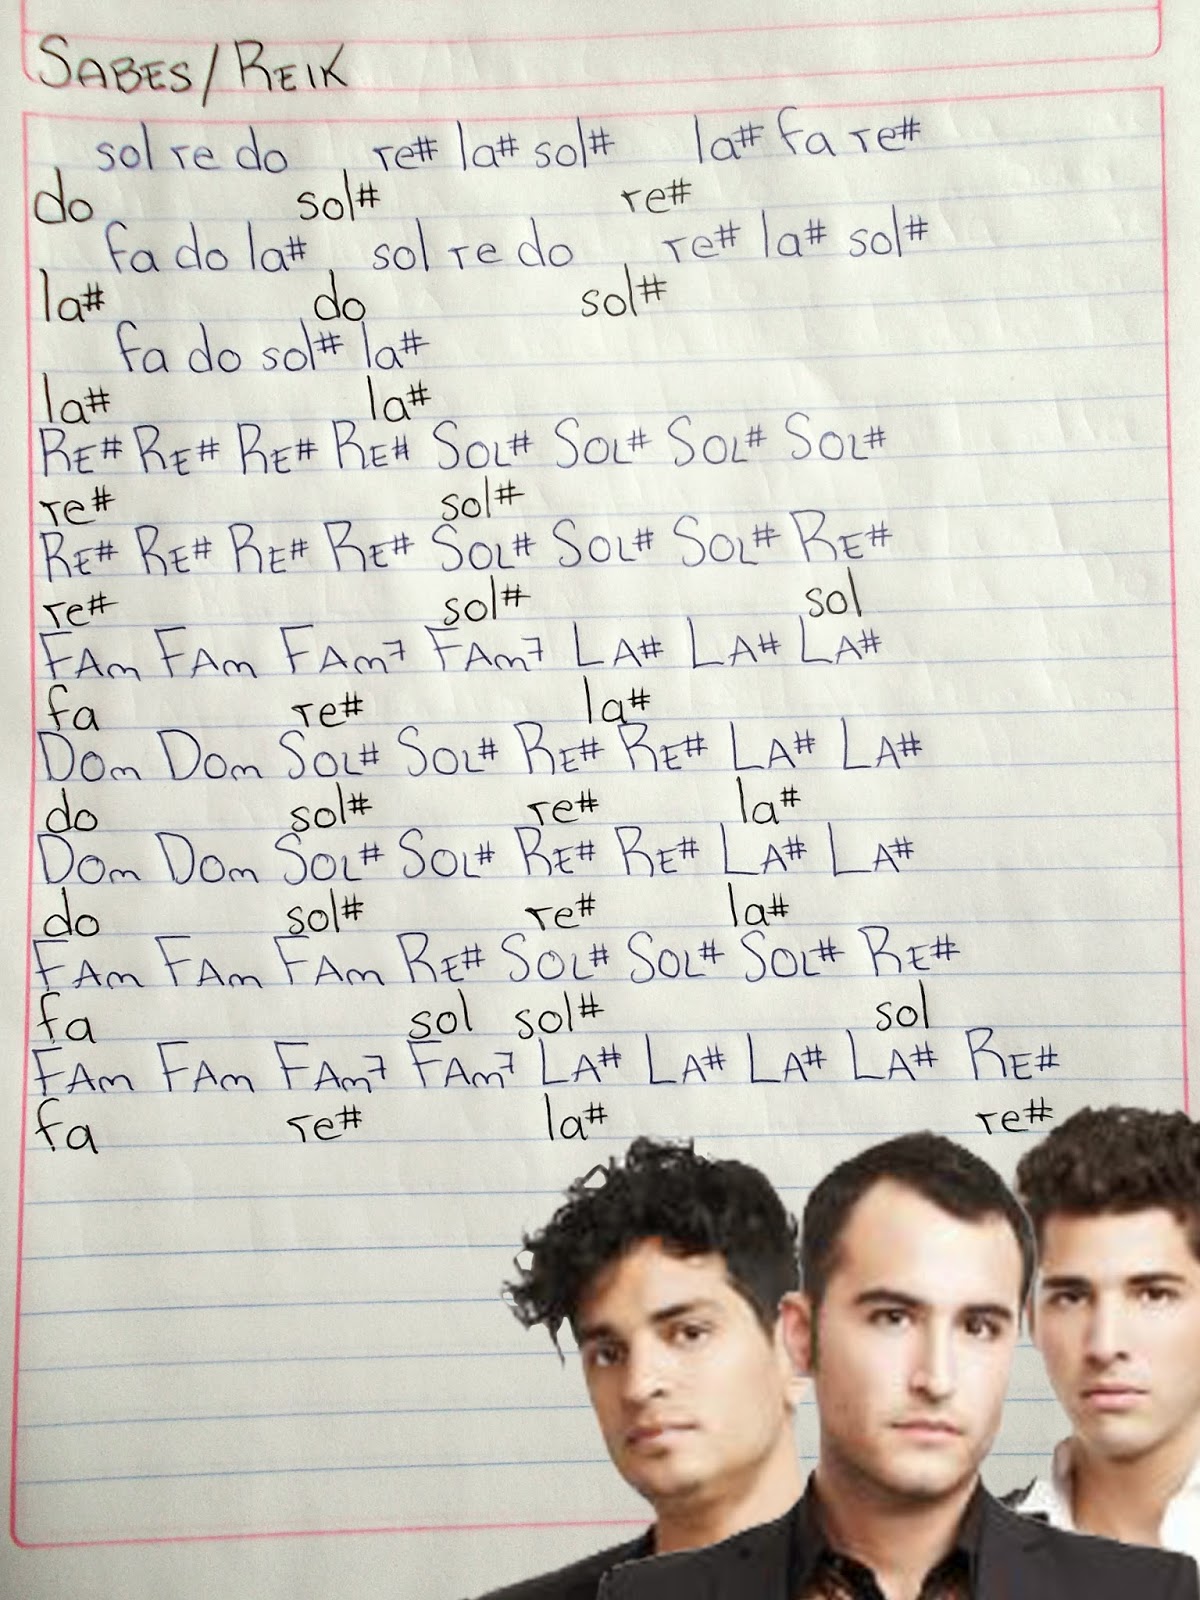 SABES/REIK
sol re do re# la# sol# la# fa re#
do sol# re#
fa do la# sol re do re# la# sol#
la# do sol#
fa do sol# la#
la# la#
RE# RE# RE# RE# SOL# SOL# SOL# SOL#
re# sol#
RE# RE# RE# RE# SOL# SOL# SOL# RE#
re# sol# sol
FAm FAm FAm7 FAm7 LA# LA# LA#
fa re# la#
DOm DOm SOL# SOL# RE# RE# LA# LA#
do sol# re# la#
DOm DOm SOL# SOL# RE# RE# LA# LA#
do sol# re# la#
FAm FAm FAm RE# SOL# SOL# SOL# RE#
fa sol sol# sol
FAm FAm FAm7 FAm7 LA# LA# LA# LA# RE#
fa re# la# re#